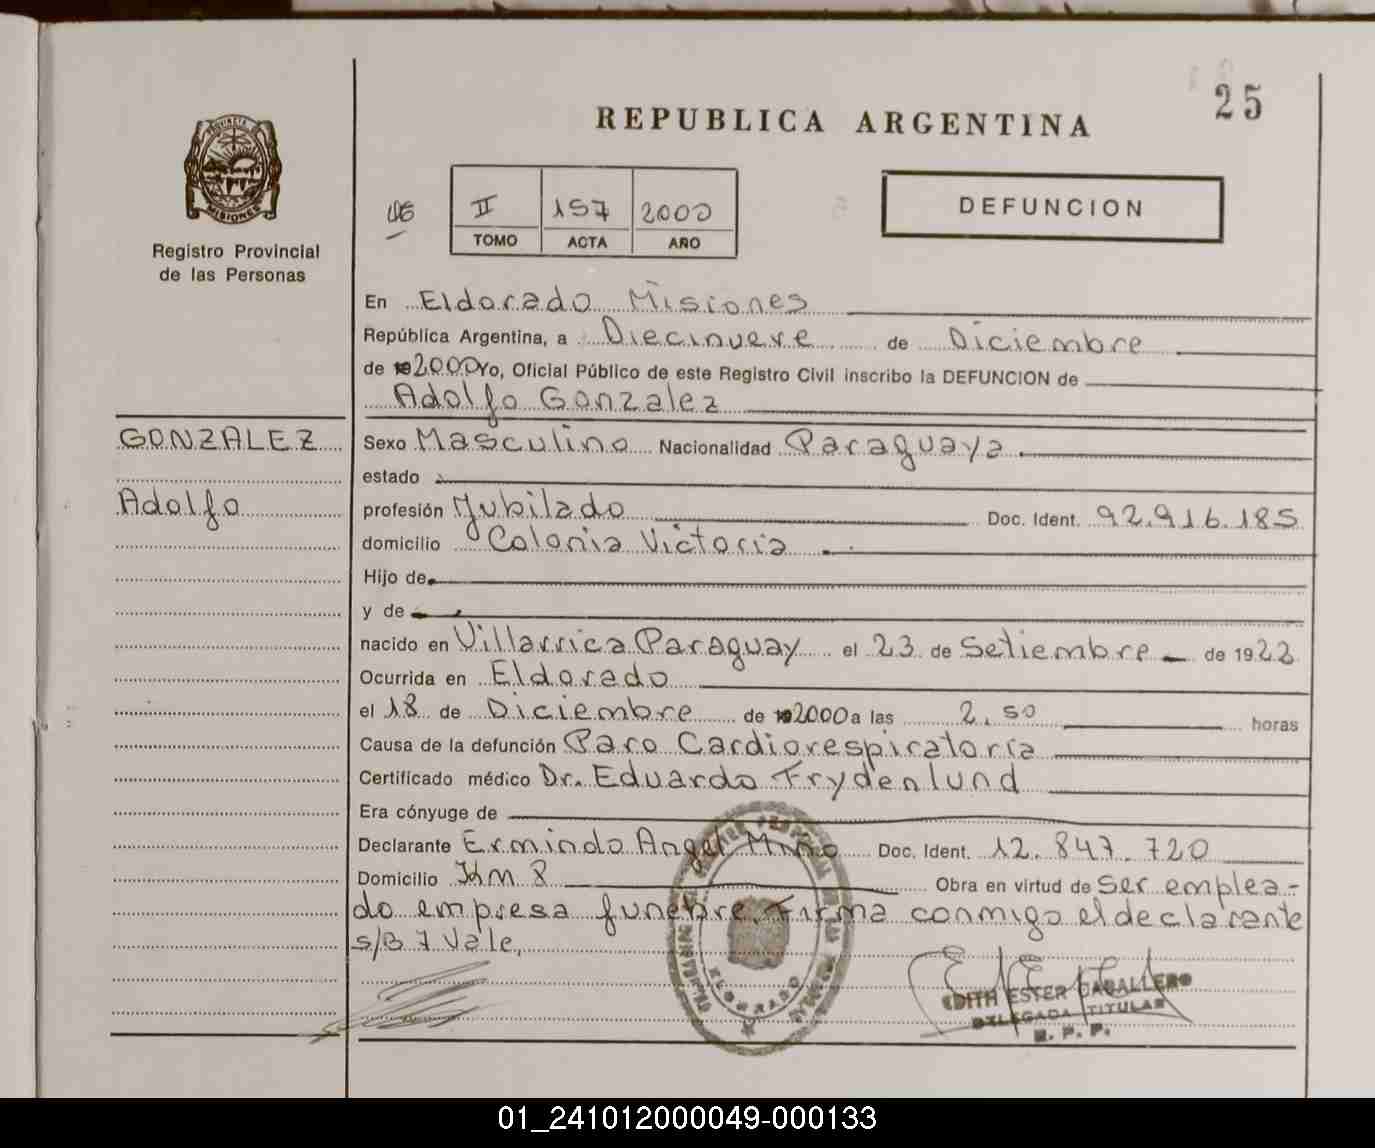 25
REPUBLICA ARGENTINA
PROVINCIA DE
MISIONES
Registro Provincial
de las Personas
II 157 2000
TOMO ACTA AÑO
DEFUNCION
En Eldorado Misiones
República Argentina, a Diecinueve de Diciembre
de 192000 Yo, Oficial Público de este Registro Civil inscribo la DEFUNCION de
Adolfo Gonzalez
GONZALEZ
Adolfo
Sexo Masculino Nacionalidad Paraguaya
estado
profesión Jubilado Doc. Ident. 92.916.185
domicilio Colonia Victoria
Hijo de
y de
nacido en Villarrica Paraguay el 23 de Setiembre de 1923
Ocurrida en Eldorado
el 18 de Diciembre de 192000 a las 2.50 horas
Causa de la defunción Paro Cardiorespiratoria
Certificado médico Dr. Eduardo Frydenlund
Era cónyuge de
Declarante Ermindo Angel Miño Doc. Ident. 12.847.720
Domicilio Km 8 Obra en virtud de Ser emplea-
do empresa funebre. Firma conmigo el declarante
s/B 7 Vale.
ELDORADO
EDITH ESTER CABALLERO
DELEGADA TITULAR
R. P. P.
01_241012000049-000133